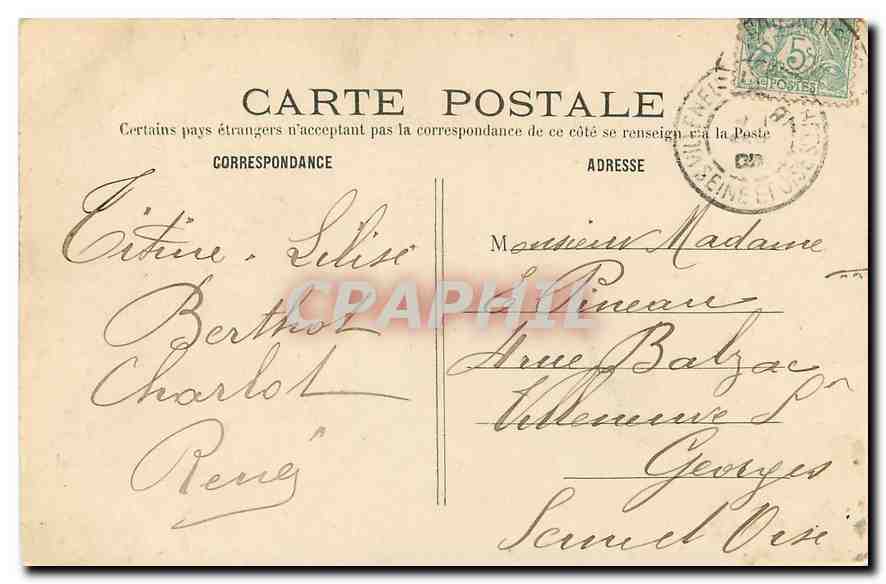 5c
POSTES
CARTE POSTALE
Certains pays étrangers n'acceptant pas la correspondance de ce côté se renseigner à la Poste
CORRESPONDANCE
ADRESSE
SEINE ET OISE
Titine. Lilise
Berthot
Charlot
René
Monsieur Madame
Pineau
4 rue Balzac
Villeneuve St
Georges
Seine et Oise
CPAPHIL